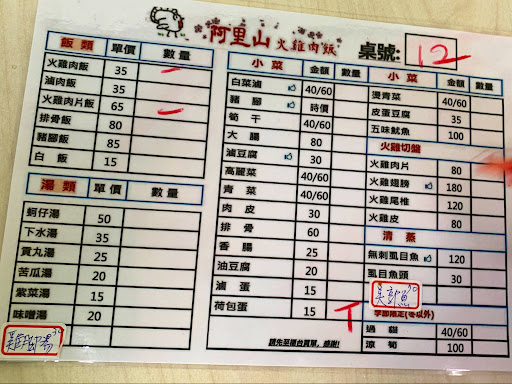 阿里山火雞肉飯
桌號: 12
飯類 單價 數量
火雞肉飯 35
滷肉飯 35
火雞肉片飯 65
排骨飯 80
豬腳飯 85
白飯 15
湯類 單價 數量
蚵仔湯 50
下水湯 35
貢丸湯 25
苦瓜湯 20
紫菜湯 15
味噌湯 20
小菜 金額 數量
白菜滷 40/60
豬腳 時價
筍干 40/60
大腸 80
滷豆腐 30
高麗菜 40/60
青菜 40/60
肉皮 30
排骨 60
香腸 25
油豆腐 20
滷蛋 15
荷包蛋 15
請先至櫃台買單,感謝!
小菜 金額 數量
燙青菜 40/60
皮蛋豆腐 35
五味魷魚 100
火雞切盤
火雞肉片 80
火雞翅膀 180
火雞尾椎 120
火雞皮 80
清蒸
無刺虱目魚 120
虱目魚頭 30
季節限定(冬以外)
過貓 40/60
涼筍 100